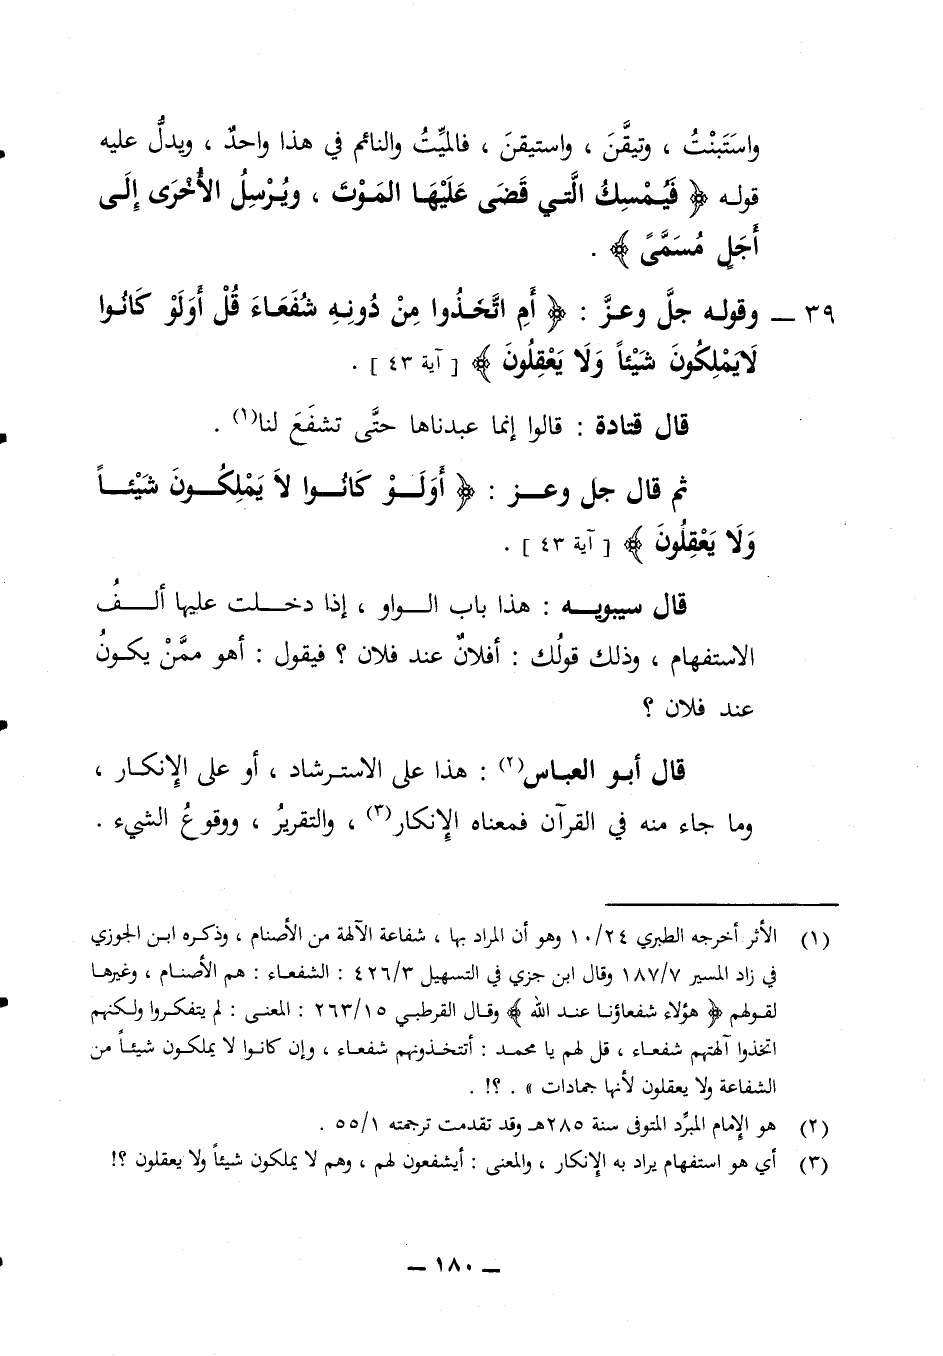 واسَتَبَنْتُ ، وتيقَّنَ ، واستيقنَ ، فالميِّتُ والنائم في هذا واحدٌ ، ويدلُّ عليه
قوله ﴿ فَيُمْسِكُ الَّتي قَضَى عَلَيْهَا المَوْتَ ، ويُرْسِلُ الأُخْرَى إِلَى
أَجَلٍ مُسَمَّىً ﴾ .
٣٩ ــ وقوله جلَّ وعزَّ : ﴿ أَمِ اتَّخَذُوا مِنْ دُونِهِ شُفَعَاءَ قُلْ أَوَلَوْ كَانُوا
لَايَمْلِكُونَ شَيْئاً وَلَا يَعْقِلُونَ ﴾ [ آية ٤٣ ] .
قال قتادة : قالوا إنما عبدناها حتَّى تشفَعَ لنا(١) .
ثم قال جل وعــز : ﴿ أَوَلَــوْ كَانُــوا لاَ يَمْلِكُــونَ شَيْئــاً
وَلَا يَعْقِلُونَ ﴾ [ آية ٤٣ ] .
قال سيبويــه : هذا باب الــواو ، إذا دخــلت عليها ألــفُ
الاستفهام ، وذلك قولُك : أفلانٌ عند فلان ؟ فيقول : أهو ممَّنْ يكونُ
عند فلان ؟
قال أبو العباس(٢) : هذا على الاسترشاد ، أو على الإنكار ،
وما جاء منه في القرآن فمعناه الإنكار(٣) ، والتقريرُ ، ووقوعُ الشيء .
(١) الأثر أخرجه الطبري ١٠/٢٤ وهو أن المراد بها ، شفاعة الآلهة من الأصنام ، وذكره ابن الجوزي
في زاد المسير ١٨٧/٧ وقال ابن جزي في التسهيل ٤٢٦/٣ : الشفعاء : هم الأصنام ، وغيرها
لقولهم ﴿ هؤلاء شفعاؤنا عند الله ﴾ وقال القرطبي ٢٦٣/١٥ : المعنى : لم يتفكروا ولكنهم
اتخذوا آلهتهم شفعاء ، قل لهم يا محمد : أتتخذونهم شفعاء ، وإن كانوا لا يملكون شيئاً من
الشفاعة ولا يعقلون لأنها جمادات » . ؟! .
(٢) هو الإمام المبرِّد المتوفى سنة ٢٨٥هـ وقد تقدمت ترجمته ٥٥/١ .
(٣) أي هو استفهام يراد به الإنكار ، والمعنى : أيشفعون لهم ، وهم لا يملكون شيئاً ولا يعقلون ؟!
ــ ١٨٠ ــ